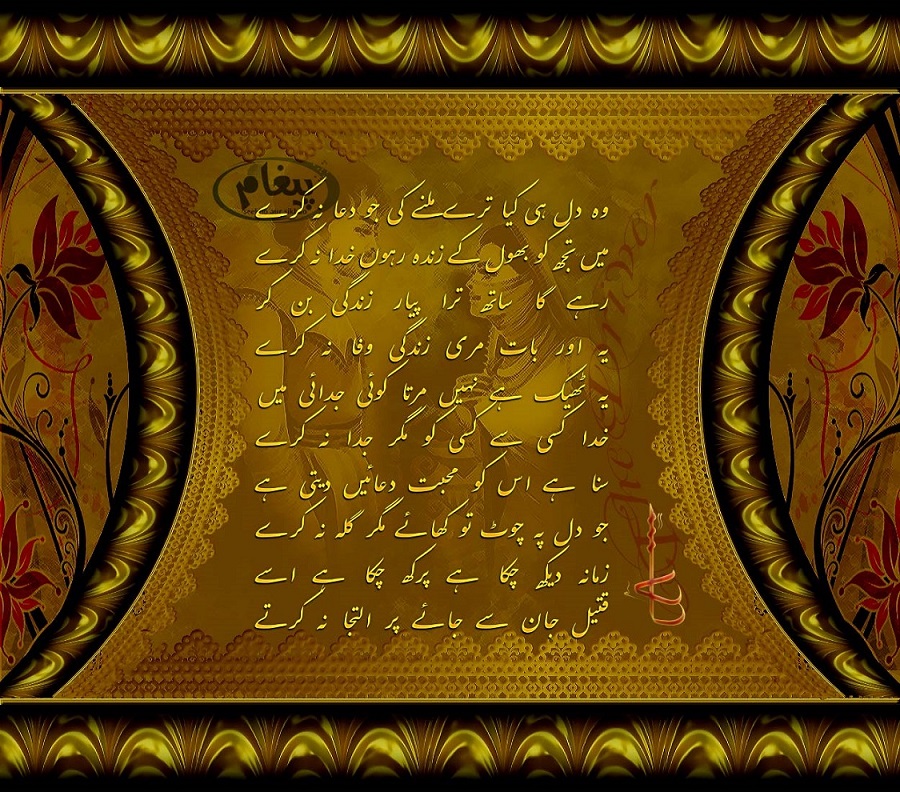 پیغام
وہ دل ہی کیا ترے ملنے کی جو دعا نہ کرے
میں تجھ کو بھول کے زندہ رہوں خدا نہ کرے
رہے گا ساتھ ترا پیار زندگی بن کر
یہ اور بات مری زندگی وفا نہ کرے
یہ ٹھیک ہے نہیں مرتا کوئی جدائی میں
خدا کسی سے کسی کو مگر جدا نہ کرے
سنا ہے اس کو محبت دعائیں دیتی ہے
جو دل پہ چوٹ تو کھائے مگر گلہ نہ کرے
زمانہ دیکھ چکا ہے پرکھ چکا ہے اسے
قتیل جان سے جائے پر التجا نہ کرتے